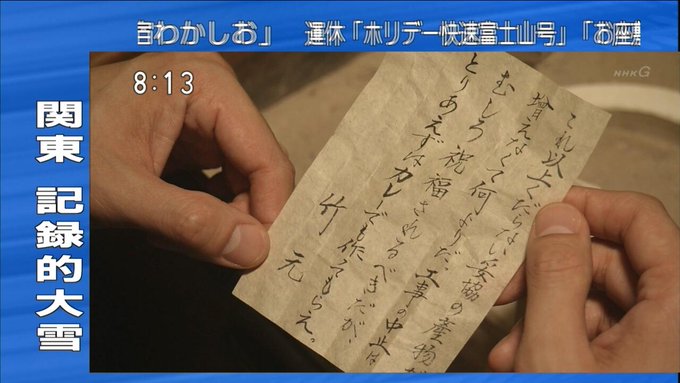 「わかしお」 運休「ホリデー快速富士山号」「お座
NHK G
8:13
関東 記録的大雪
これ以上くだらない妥協の産物が
増えなくて何よりだ。工事の中止は
むしろ祝福されるべきだが、
とりあえずはカレーでも作ってもらえ。
竹元